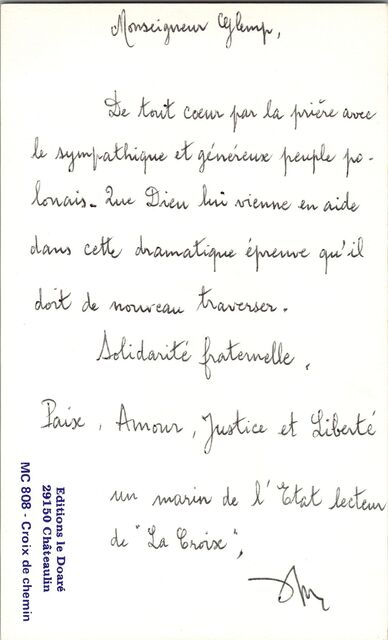 Monseigneur Glemp,
De tout coeur par la prière avec
le sympathique et généreux peuple po-
lonais. Que Dieu lui vienne en aide
dans cette dramatique épreuve qu'il
doit de nouveau traverser.
Solidarité fraternelle.
Paix, Amour, Justice et Liberté
un marin de l'Etat lecteur
de "La Croix",
Editions le Doaré
29150 Châteaulin
MC 808 - Croix de chemin